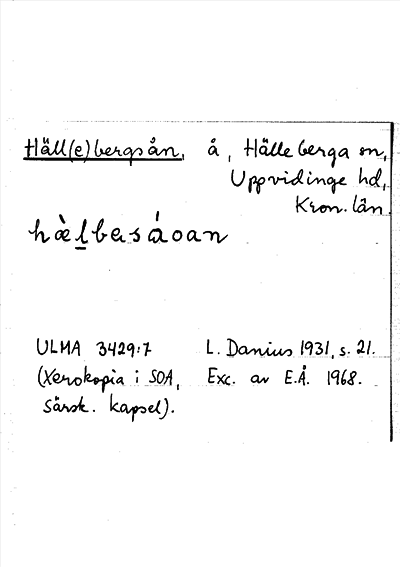 Häll(e)bergsån, å, Hälleberga sn,
Uppvidinge hd,
Kron. län.
hæ̀l̲basáoan
ULMA 3429:7 L. Danius 1931, s. 21.
(Xerokopia i SOA, Exc. av E.Å. 1968.
särsk. kapsel).